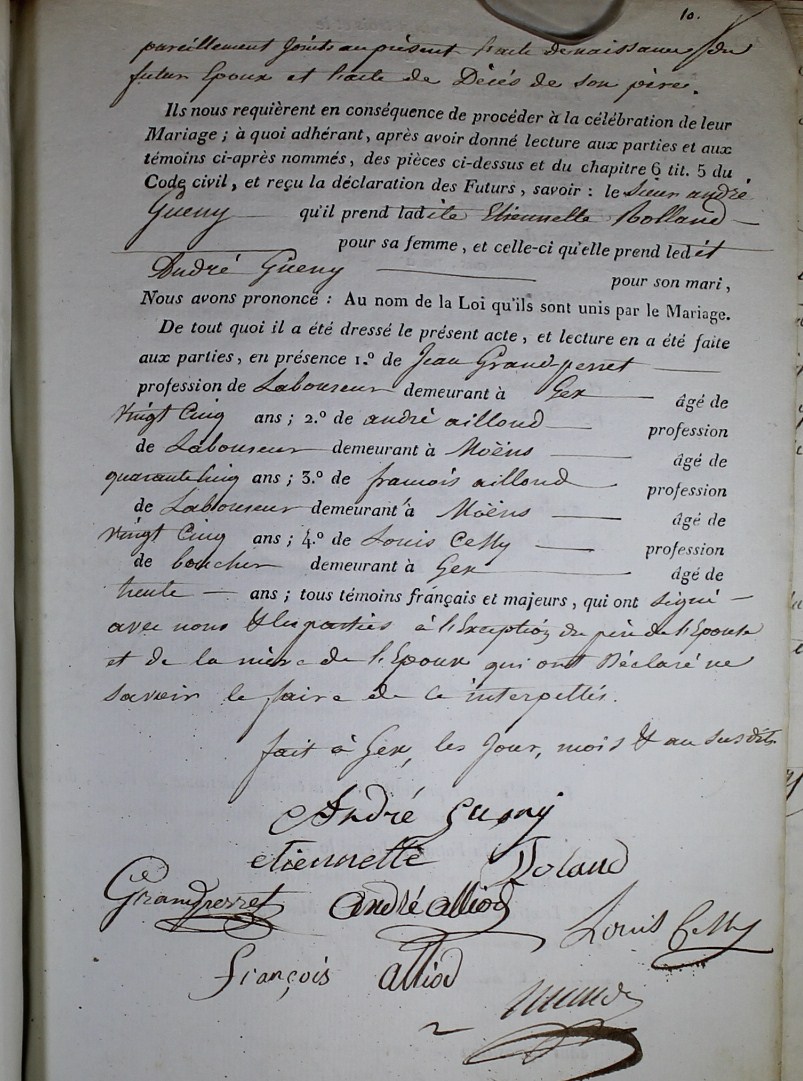 10.
pareillement Joints au présent l'acte de naissance du
futur Epoux et l'acte de Décés de son père.
Ils nous requièrent en conséquence de procéder à la célébration de leur
Mariage ; à quoi adhérant, après avoir donné lecture aux parties et aux
témoins ci-après nommés, des pièces ci-dessus et du chapitre 6 tit. 5 du
Code civil, et reçu la déclaration des Futurs, savoir : le Sieur andré
Gueny qu'il prend ladite Etiennette Rolland
pour sa femme, et celle-ci qu'elle prend ledit
André Gueny pour son mari,
Nous avons prononcé : Au nom de la Loi qu'ils sont unis par le Mariage.
De tout quoi il a été dressé le présent acte, et lecture en a été faite
aux parties, en présence 1.º de Jean Grandperret
profession de Laboureur demeurant à Gex âgé de
vingt Cinq ans ; 2.º de andré aillond profession
de Laboureur demeurant à Moëns âgé de
quarante Cinq ans ; 3.º de francois aillond profession
de Laboureur demeurant à Moëns âgé de
vingt Cinq ans ; 4.º de Louis Celly profession
de boucher demeurant à Gex âgé de
trente ans ; tous témoins français et majeurs, qui ont signé
avec nous & les parties à l'Exception du père de l'Epouse
et de la mère de l'Epoux qui ont Déclaré ne
savoir le faire de ce interpellés.
fait à Gex, les Jour, mois & an susdits.
André Gueny
etiennette Roland
Grandperret andré alliod
Louis Celly
françois alliod